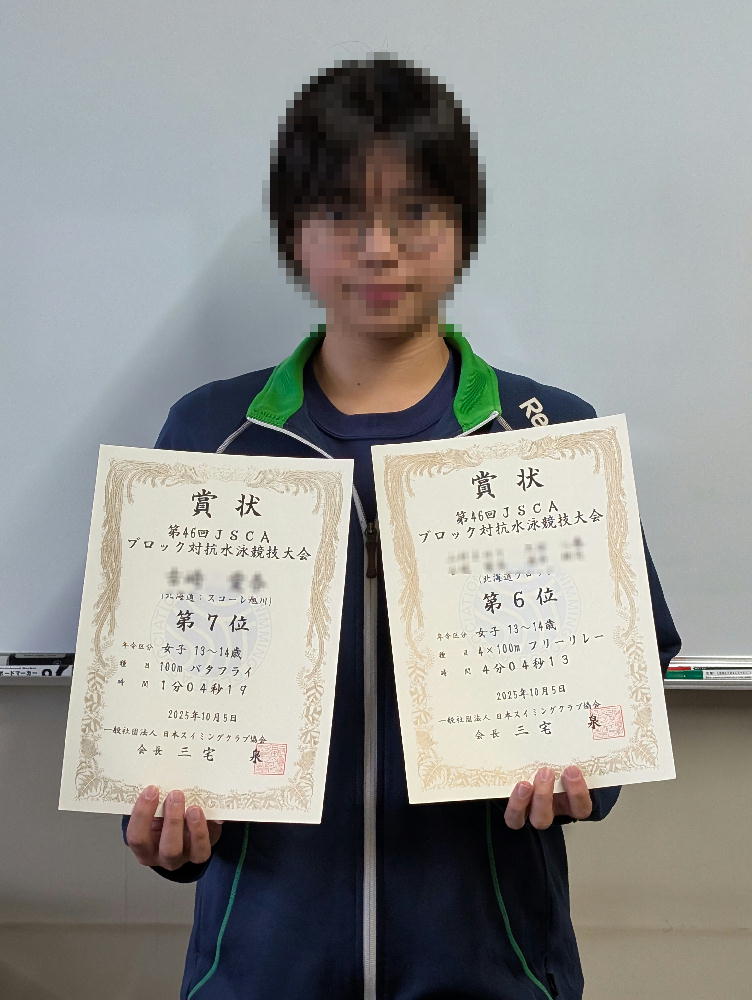 Re
賞状
第46回JSCA
ブロック対抗水泳競技大会
(北海道：スコーレ旭川)
第7位
年令区分 女子 13〜14歳
種目 100m バタフライ
時間 1分04秒19
2025年10月5日
一般社団法人 日本スイミングクラブ協会
会長 三宅 泉
賞状
第46回JSCA
ブロック対抗水泳競技大会
第6位
年令区分 女子 13〜14歳
種目 4×100m フリーリレー
時間 4分04秒13
2025年10月5日
一般社団法人 日本スイミングクラブ協会
会長 三宅 泉
ボードマーカー